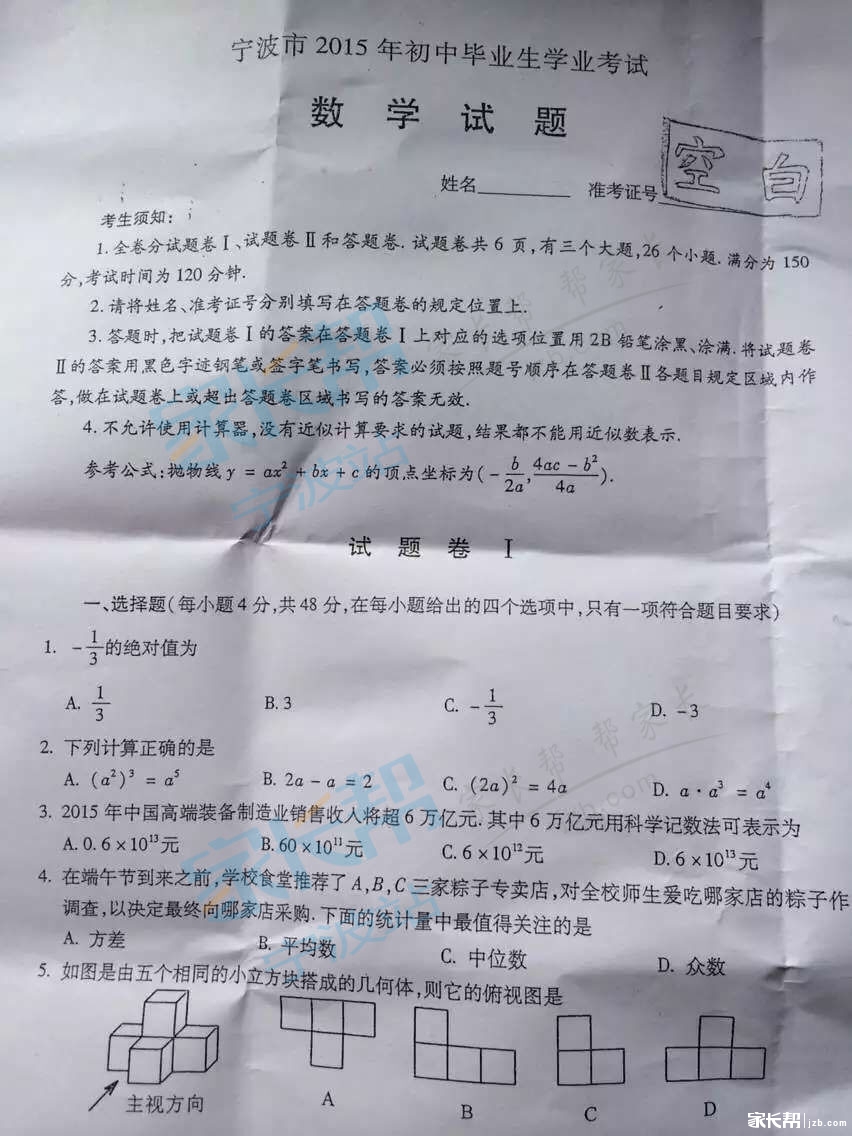 宁波市 2015 年初中毕业生学业考试
数 学 试 题
空 白
姓名________ 准考证号
考生须知：
1. 全卷分试题卷Ⅰ、试题卷Ⅱ和答题卷. 试题卷共 6 页,有三个大题,26 个小题. 满分为 150
分,考试时间为 120 分钟.
2. 请将姓名、准考证号分别填写在答题卷的规定位置上.
3. 答题时,把试题卷Ⅰ的答案在答题卷Ⅰ上对应的选项位置用 2B 铅笔涂黑、涂满. 将试题卷
Ⅱ的答案用黑色字迹钢笔或签字笔书写,答案必须按照题号顺序在答题卷Ⅱ各题目规定区域内作
答,做在试题卷上或超出答题卷区域书写的答案无效.
4. 不允许使用计算器,没有近似计算要求的试题,结果都不能用近似数表示.
参考公式:抛物线 y = ax² + bx + c 的顶点坐标为(-b/2a, (4ac - b²)/4a).
试 题 卷 Ⅰ
一、选择题(每小题 4 分,共 48 分,在每小题给出的四个选项中,只有一项符合题目要求)
1. -1/3的绝对值为
A. 1/3 B. 3 C. -1/3 D. -3
2. 下列计算正确的是
A. (a²)³ = a⁵ B. 2a - a = 2 C. (2a)² = 4a D. a · a³ = a⁴
3. 2015 年中国高端装备制造业销售收入将超 6 万亿元. 其中 6 万亿元用科学记数法可表示为
A. 0.6×10¹³元 B. 60×10¹¹元 C. 6×10¹²元 D. 6×10¹³元
4. 在端午节到来之前,学校食堂推荐了 A,B,C 三家粽子专卖店,对全校师生爱吃哪家店的粽子作
调查,以决定最终向哪家店采购. 下面的统计量中最值得关注的是
A. 方差 B. 平均数 C. 中位数 D. 众数
5. 如图是由五个相同的小立方块搭成的几何体,则它的俯视图是
主视方向 A B C D
家长帮
宁波站
家长帮
宁波站
家长帮|jzb.com